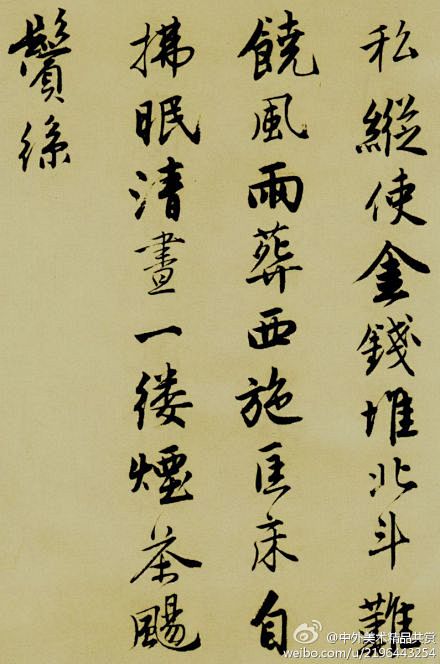 私縱使金錢堆北斗難
饒風雨葬西施匡床自
拂眠清晝一縷煙茶颺
鬢絲
@中外美术精品共赏
weibo.com/u/2196443254